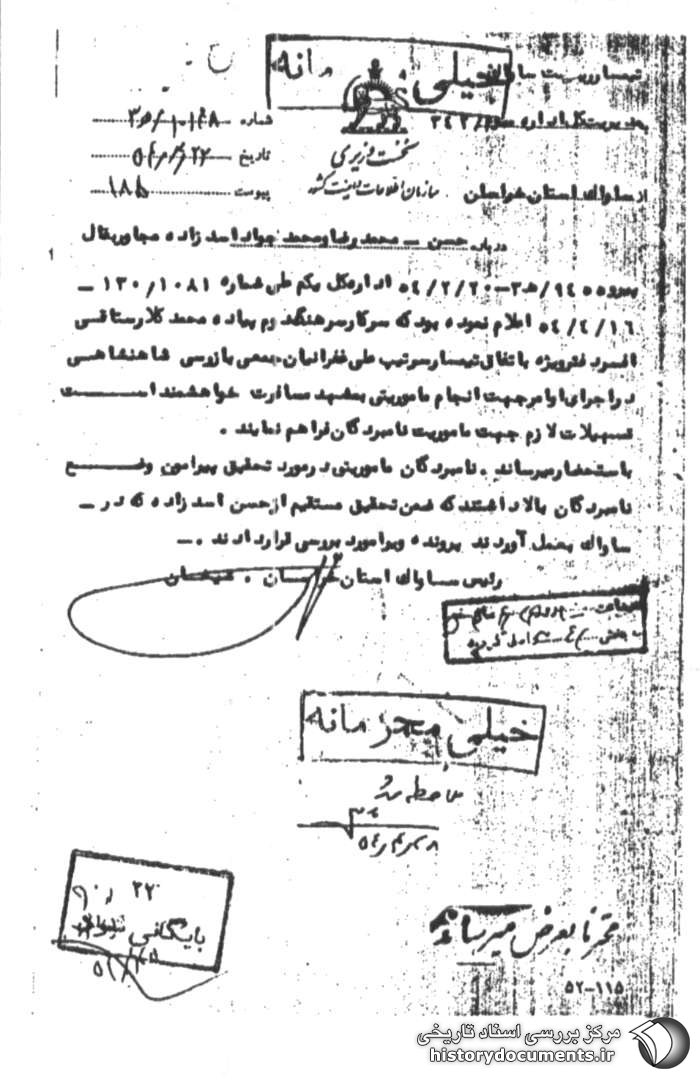 خیلی محرمانه
تیمسار ریاست ساواک
بمدیریت کل اداره سوم ۳۴۲
شماره
نخست وزیری
تاریخ
سازمان اطلاعات و امنیت کشور
پیوست
از ساواک استان خراسان
درباره حسن ــ محمدرضا و محمد جواد اسدزاده مجاور بقال
۱
اداره کل یکم طی شماره ۱۳۰/۱۰۸۱ ــ
۵۴/۴/۱۶ اعلام نموده بود که سرکار سرهنگ دوم پیاده محمد کلارستاقی
افسر دفتر ویژه باتفاق تیمسار سرتیپ علی غفرانیان جمعی بازرسی شاهنشاهی
در اجرای اوامر جهت انجام ماموریتی بمشهد مسافرت خواهشمند است
تسهیلات لازم جهت ماموریت نامبردگان فراهم نمایند .
باستحضار میرساند . نامبردگان ماموریتی در مورد تحقیق پیرامون وضع
نامبردگان بالا داشتند که ضمن تحقیق مستقیم از حسن اسدزاده که در ــ
ساواک بعمل آوردند پرونده ویرا مورد بررسی قرار دادند . ــ
رئیس ساواک استان خراسان . شیخان
خیلی محرمانه
ملاحظه شد
۲۲
بایگانی
محترما بعرض میرساند
۵۲-۱۱۵
مرکز بررسی اسناد تاریخی
historydocuments.ir